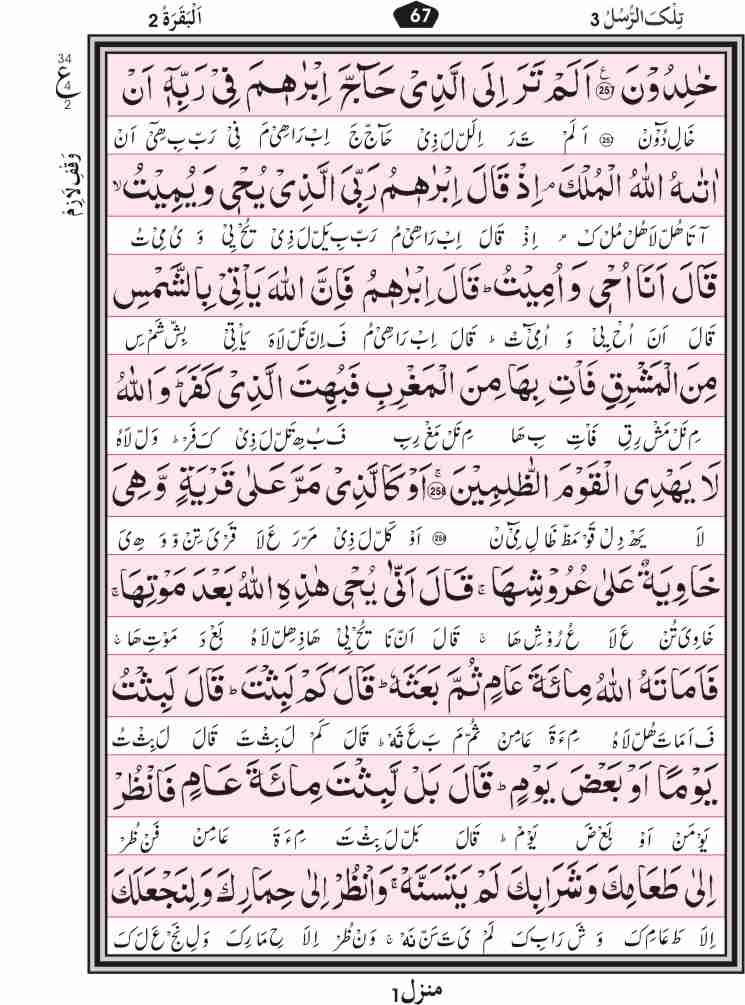 تِلْكَ الرُّسُلُ 3
67
اَلْبَقَرَةُ 2
34
ع
4
2
وَقْفِ لَازِمْ
خٰلِدُوْنَ ۞257 اَلَمْ تَرَ اِلَى الَّذِىْ حَآجَّ اِبْرٰهٖمَ فِىْ رَبِّهٖٓ اَنْ
خَالِ دُوْٓنْ 257 اَ لَمْ تَ رَ اِلَلْ لَ ذِىْ حَآجْ جَ اِبْ رَاهِىْ مَ فِىْ رَبْ بِ هِىْٓ اَنْ
اٰتٰىهُ اللّٰهُ الْمُلْكَ ۘ اِذْ قَالَ اِبْرٰهٖمُ رَبِّىَ الَّذِىْ يُحْىٖ وَيُمِيْتُ ۙ
آ تَا هُلْ لَا هُلْ مُلْ كَ ۘ اِذْ قَالَ اِبْ رَاهِىْ مُ رَبْ بِ يَلْ لَ ذِىْ يُحْ يِىْ وَ يُ مِىْ تُ
قَالَ اَنَا اُحْىٖ وَاُمِيْتُ ؕ قَالَ اِبْرٰهٖمُ فَاِنَّ اللّٰهَ يَاْتِىْ بِالشَّمْسِ
قَالَ اَنَ اُحْ يِىْ وَ اُ مِىْٓ تْ ؕ قَالَ اِبْ رَاهِىْ مُ فَ اِنْ نَلْ لَاهَ يَاْتِىْ بِشْ شَمْ سِ
مِنَ الْمَشْرِقِ فَاْتِ بِهَا مِنَ الْمَغْرِبِ فَبُهِتَ الَّذِىْ كَفَرَ ؕ وَاللّٰهُ
مِ نَلْ مَشْ رِقِ فَاْتِ بِ هَا مِ نَلْ مَغْ رِبِ فَ بُ هِ تَلْ لَ ذِىْ كَ فَرْ ؕ وَلْ لَاهُ
لَا يَهْدِى الْقَوْمَ الظّٰلِمِيْنَ ۞258 اَوْ كَالَّذِىْ مَرَّ عَلٰى قَرْيَةٍ وَّهِىَ
لَا يَهْ دِلْ قَوْ مَظْ ظَالِ مِىْٓ نْ 258 اَوْ كَلْ لَ ذِىْ مَرْ رَ عَ لَا قَرْ يَ تِنْ وَ وَ هِ ىَ
خَاوِيَةٌ عَلٰى عُرُوْشِهَا ۚ قَالَ اَنّٰى يُحْىٖ هٰذِهِ اللّٰهُ بَعْدَ مَوْتِهَا ۚ
خَاوِىَ تُنْ عَ لَا عُ رُوْشِ هَا ۚ قَالَ اَنْ نَا يُحْ يِىْ هَاذِ هِلْ لَاهُ بَعْ دَ مَوْتِ هَا ۚ
فَاَمَاتَهُ اللّٰهُ مِائَةَ عَامٍ ثُمَّ بَعَثَهٗ ؕ قَالَ كَمْ لَبِثْتَ ؕ قَالَ لَبِثْتُ
فَ اَمَاتَ هُلْ لَاهُ مِءَةَ عَامِنْ ثُمْ مَ بَ عَ ثَهْ ؕ قَالَ كَمْ لَ بِثْ تَ قَالَ لَ بِثْ تُ
يَوْمًا اَوْ بَعْضَ يَوْمٍ ؕ قَالَ بَلْ لَّبِثْتَ مِائَةَ عَامٍ فَانْظُرْ
يَوْمَنْ اَوْ بَعْ ضَ يَوْمْ ؕ قَالَ بَلْ لَ بِثْ تَ مِءَةَ عَامِنْ فَنْ ظُرْ
اِلٰى طَعَامِكَ وَشَرَابِكَ لَمْ يَتَسَنَّهْ ۚ وَانْظُرْ اِلٰى حِمَارِكَ وَلِنَجْعَلَكَ
اِلَا طَ عَامِ كَ وَ شَ رَابِ كَ لَمْ ىَ تَ سَنْ نَهْ ۚ وَنْ ظُرْ اِلَا حِ مَارِكَ وَلِ نَجْ عَ لَ كَ
منزل1